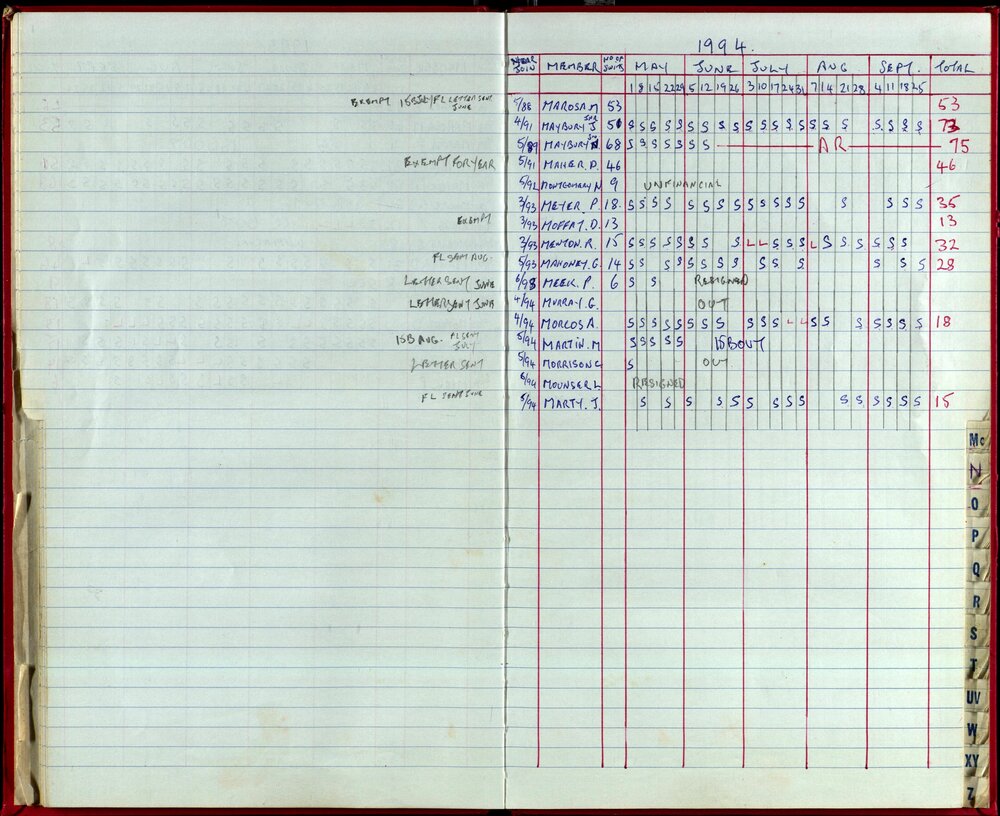 1994.
YEAR JOIN MEMBER NO OF SWIMS MAY JUNE JULY AUG SEPT. TOTAL
1 8 15 22 29 5 12 19 26 3 10 17 24 31 7 14 21 28 4 11 18 25
EXEMPT ISB JULY FL LETTER SENT JUNE 5/88 MAROSA M 53 53
4/91 MAYBURY J JNR 51 S S S S S S S S S S S S S S S S S S S S S 73
5/89 MAYBURY SNR 68 S S S S S S S AR 75
EXEMPT FOR YEAR 5/91 MAHER. D. 46 46
5/92 MONTGOMERY N 9 UNFINANCIAL
3/93 MEYER. P. 18. S S S S S S S S S S S S S S S S S 35
EXEMPT 3/93 MOFFAT. D. 13 13
3/93 MENTON. R. 15 S S S S S S S S L L S S S L S S S S S S S 32
FL SENT AUG. 5/93 MAHONEY. G. 14 S S S S S S S S S S S S S S 28
LETTER SENT JUNE 6/93 MEEK. P. 6 S S RESIGNED
LETTER SENT JUNE 4/94 MURRAY. G. OUT
4/94 MORCOS A. S S S S S S S S S S S L L S S S S S S S 18
ISB AUG. FL SENT JULY 5/94 MARTIN. M S S S S S ISB OUT
LETTER SENT 5/94 MORRISON G S OUT.
6/94 MOUNSER L RESIGNED
FL SENT JUNE 5/94 MARTY. J. S S S S S S S S S S S S S S S 15
Mc
N
O
P
Q
R
S
T
UV
W
XY
Z